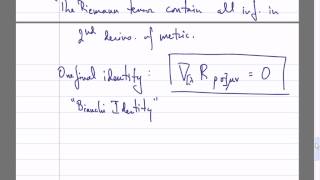 The Riemann tensor contain all inf. in
2nd derivs. of metric.
One final identity : ∇[λ R ρσ]μν = 0
"Bianchi Identity"